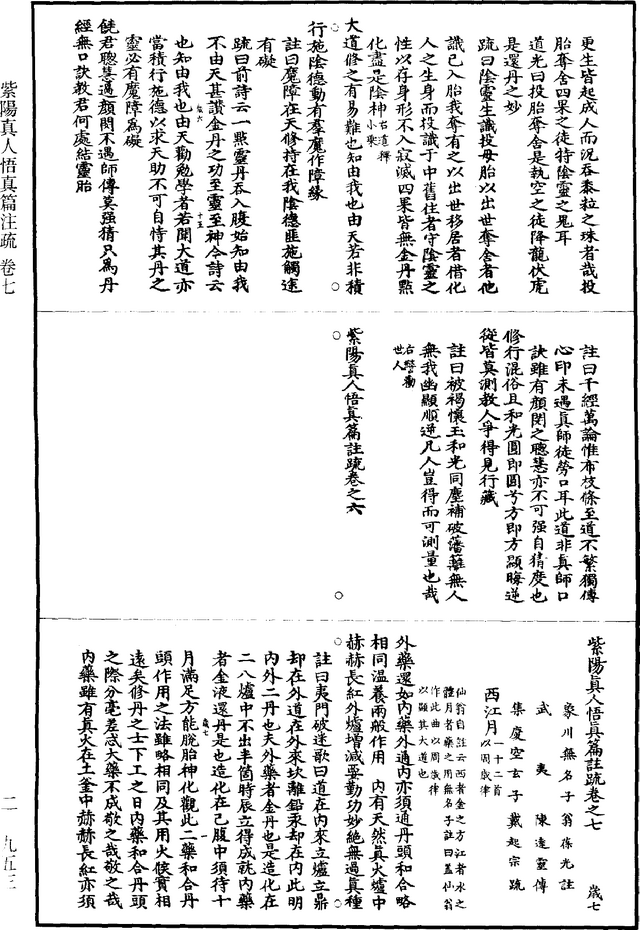 更生皆起成人而況吞黍粒之珠者哉投
胎奪舍四果之徒特陰靈之鬼耳
道光曰投胎奪舍是執空之徒降龍伏虎
是還丹之妙
疏曰陰靈生識投母胎以出世奪舍者他
識已入胎我奪有之以出世移居者借化
人之生身而投識于中舊住者守陰靈之
性以存身形不入寂滅四果皆無金丹點
化盡是陰神右道釋小乘
大道修之有易難也知由我也由天若非積
行施陰德動有羣魔作障緣
註曰魔障在天修持在我陰德匪施觸途
有礙
疏曰前詩云一點靈丹吞入腹始知由我
不由天甚讚金丹之功至靈至神今詩云
歲六 十五
也知由我也由天勸勉學者若聞大道亦
當積行施德以求天助不可自恃其丹之
靈必有魔障為礙
饒君聰慧過顏閔不遇師傳莫強猜只為丹
經無口訣教君何處結靈胎
註曰千經萬論惟布枝條至道不繁獨傳
心印未遇真師徒勞口耳此道非真師口
訣雖有顏閔之聰慧亦不可強自猜度也
修行混俗且和光圓即圓兮方即方顯晦逆
從皆莫測教人爭得見行藏
註曰被褐懷玉和光同塵補破籓籬無人
無我幽顯順逆凡人豈得而可測量也哉
右警勸世人
紫陽真人悟真篇註疏卷之六
紫陽真人悟真篇註疏卷之七 歲七
象川無名子翁葆光註
武夷陳達靈傳
集慶空玄子戴起宗疏
西江月一十二首以周歲律
仙翁自註云西者金之方江者水之
體月者藥之用無名子註曰蓋仙翁
作此曲以周歲律
以顯其大道也
外藥還如內藥外通內亦須通丹頭和合略
相同溫養兩般作用 內有天然真火爐中
赫赫長紅外爐增減要勤功妙絕無過真種
註曰夷門破迷歌曰道在內來立爐立鼎
却在外道在外來坎離鉛汞却在內此明
內外二丹也夫外藥者金丹也是造化在
二八爐中不出半箇時辰立得成就內藥
者金液還丹是也造化在己腹中須待十
歲七 一
月滿足方能脫胎神化觀此二藥和合丹
頭作用之法雖略相同及其用火候實相
遠矣修丹之士下工之日內藥和合丹頭
之際分毫差忒大藥不成敬之哉敬之哉
內藥雖有真火在土釜中赫赫長紅亦須
紫陽真人悟真篇注疏 卷七
二一九五三